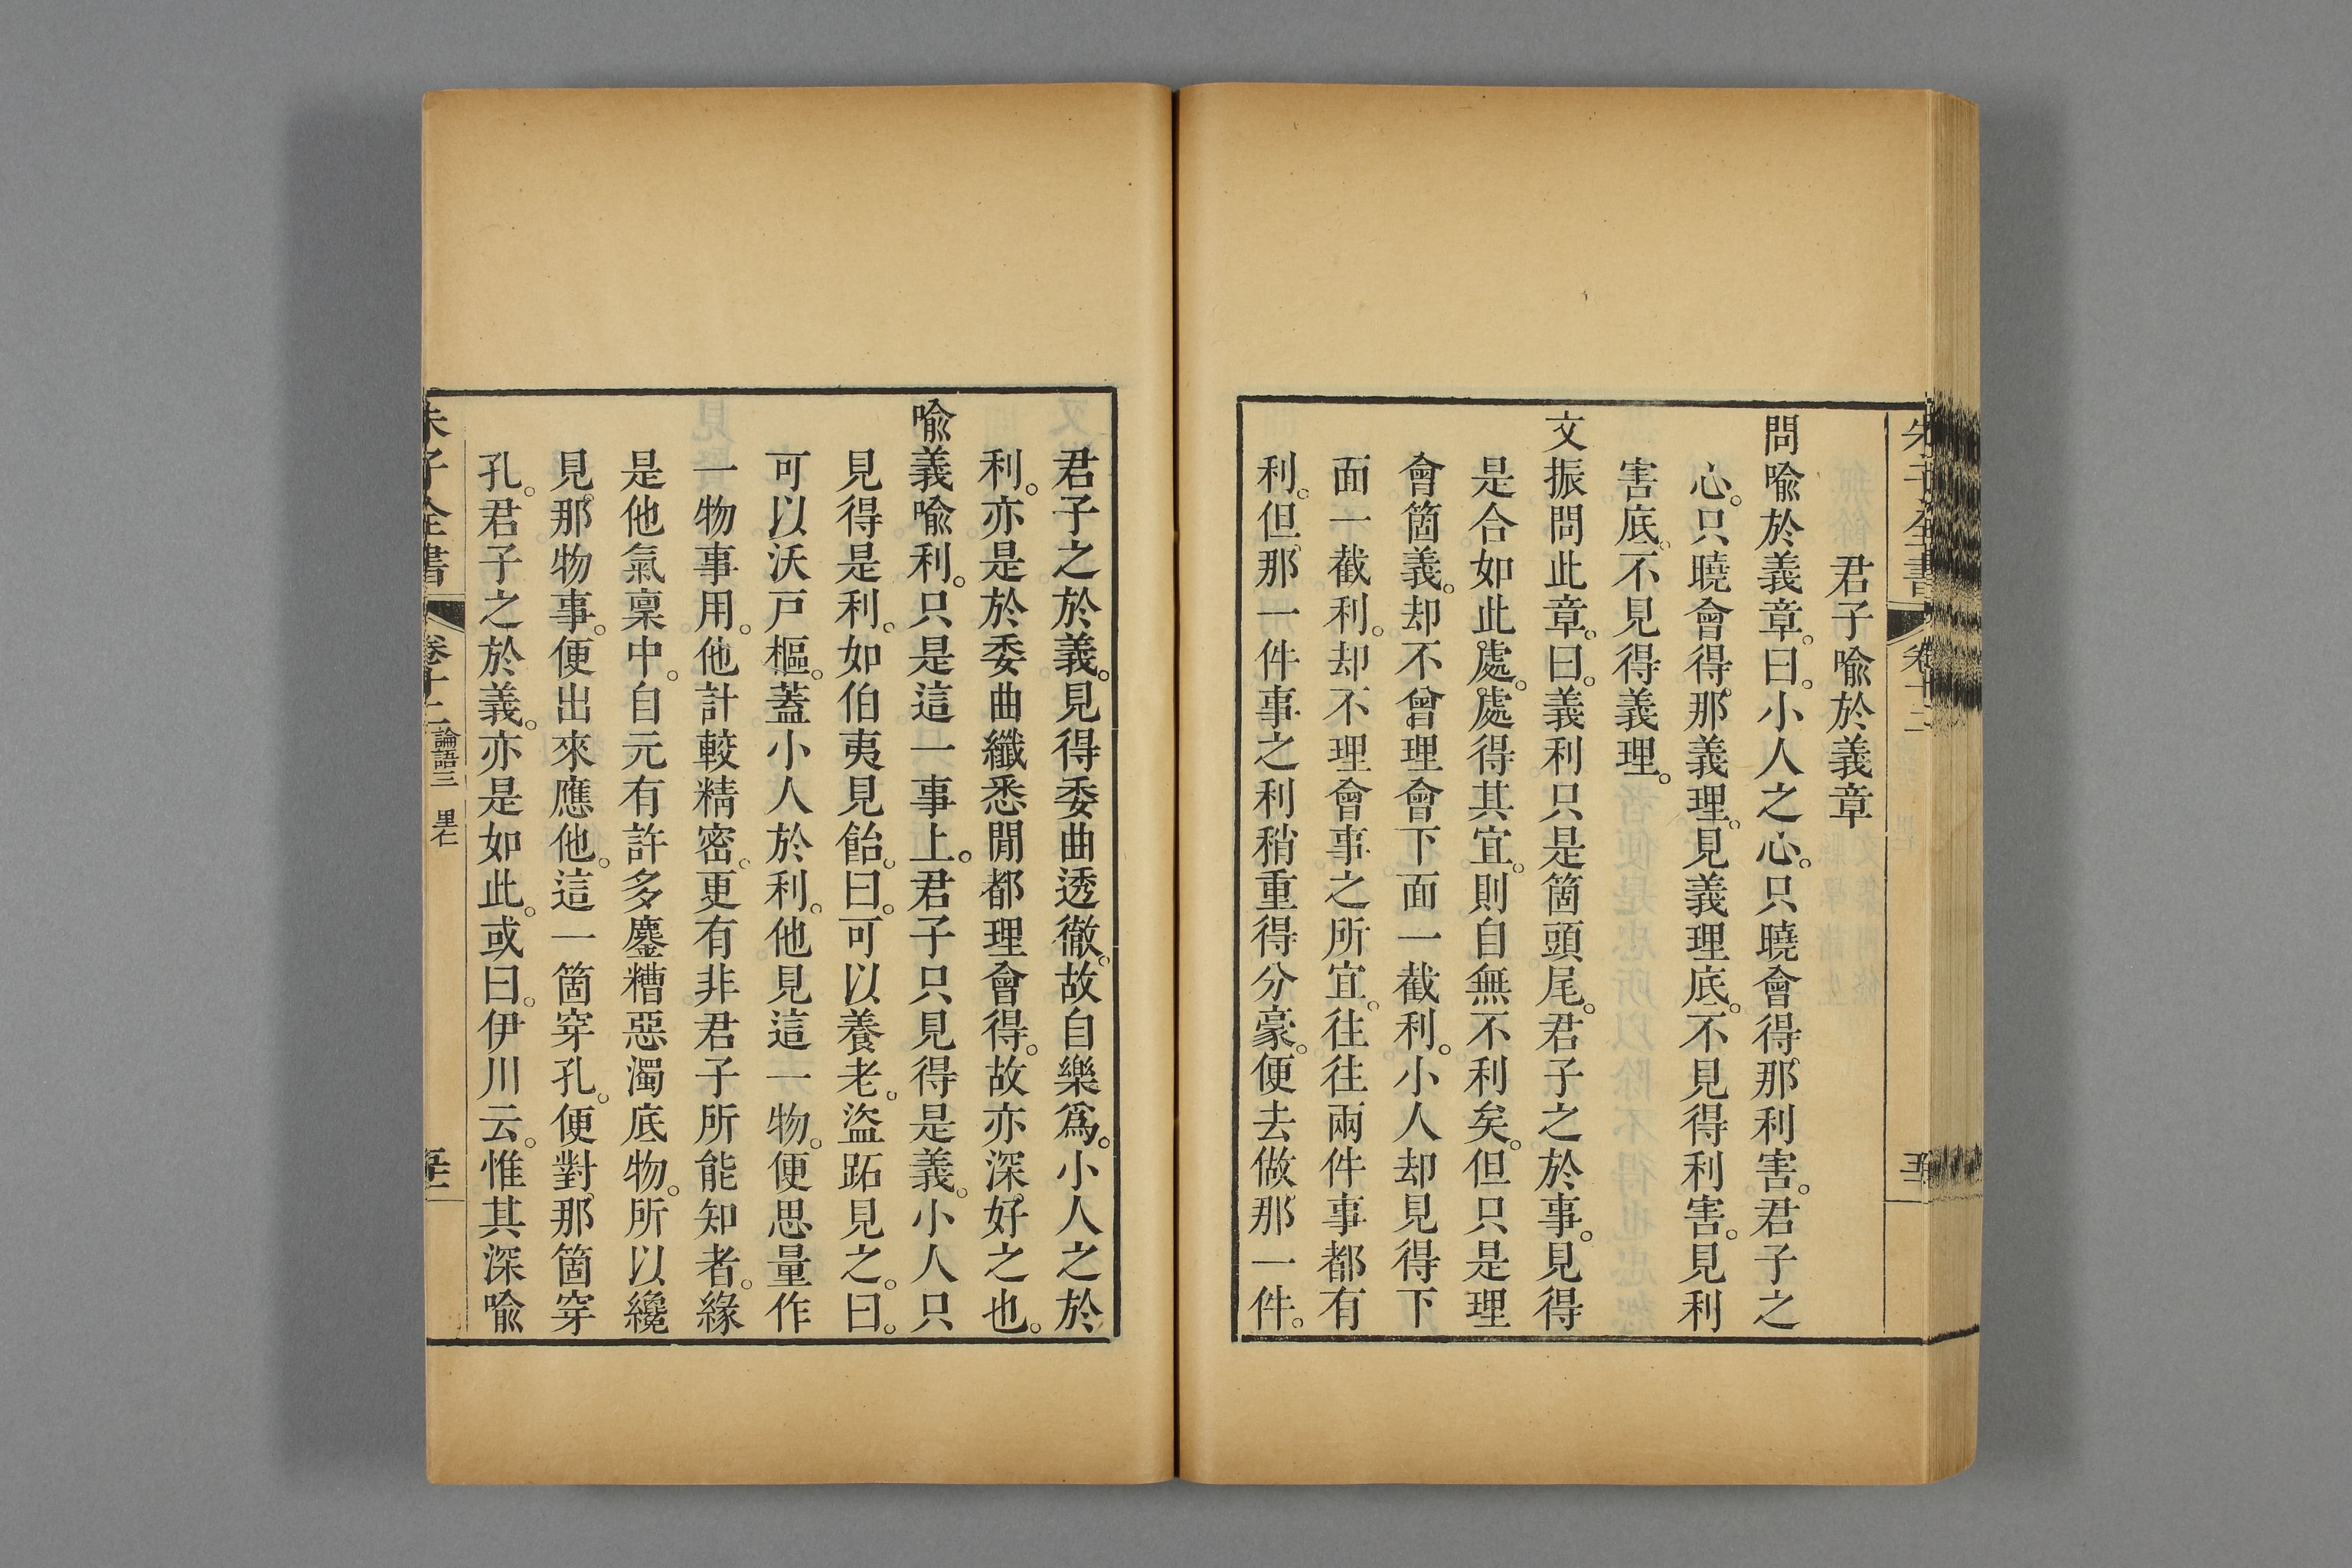 朱子全書 卷十二
君子喩於義章
問喩於義章。曰。小人之心。只曉會得那利害。君子之
心。只曉會得那義理。見義理底。不見得利害。見利
害底。不見得義理。
文振問此章。曰。義利只是箇頭尾。君子之於事。見得
是合如此處。處得其宜。則自無不利矣。但只是理
會箇義。却不曾理會下面一截利。小人却見得下
面一截利。却不理會事之所宜。往往兩件事都有
利。但那一件事之利稍重得分豪。便去做那一件。
君子之於義。見得委曲透徹。故自樂爲。小人之於
利。亦是於委曲纖悉閒都理會得。故亦深好之也。
喩義喩利。只是這一事上。君子只見得是義。小人只
見得是利。如伯夷見飴。曰。可以養老。盜跖見之。曰。
可以沃戸樞。蓋小人於利。他見這一物。便思量作
一物事用。他計較精密。更有非君子所能知者。緣
是他氣稟中。自元有許多鏖糟惡濁底物。所以纔
見那物事。便出來應他。這一箇穿孔。便對那箇穿
孔。君子之於義。亦是如此。或曰。伊川云。惟其深喩
朱子全書 卷十二 論語三 里仁